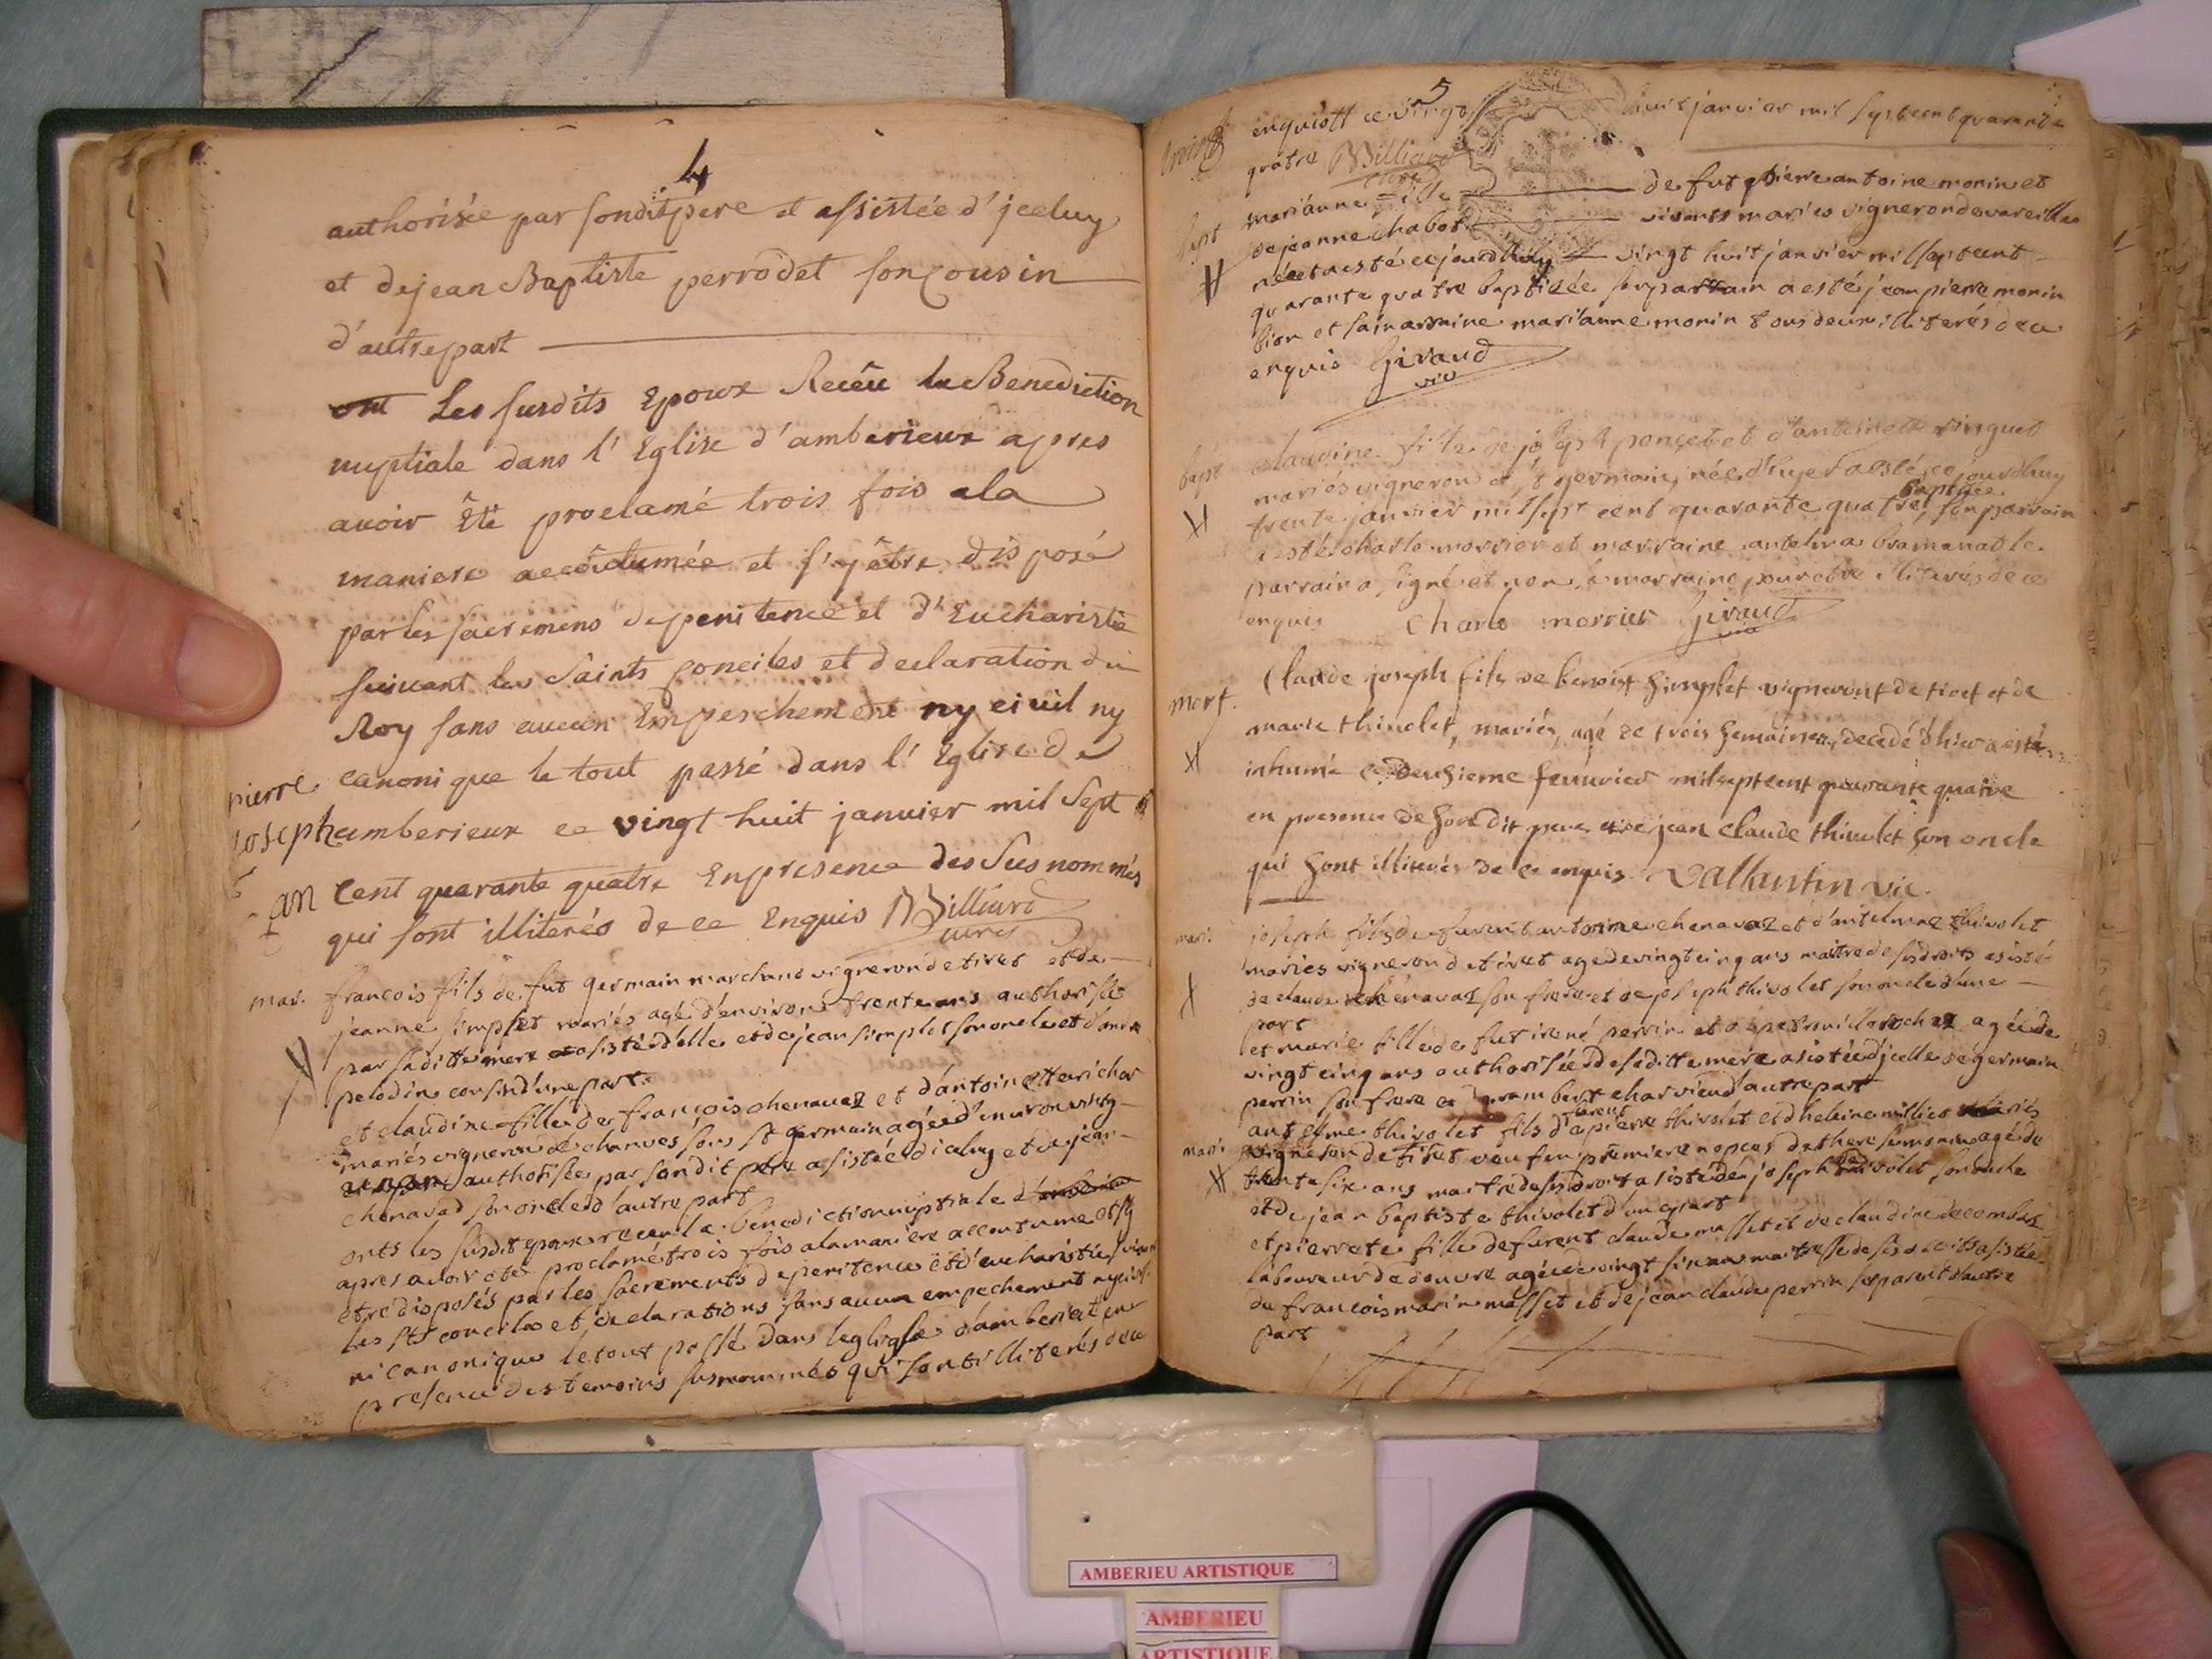 4
authorisée par sondit pere et assistée d'jceluy
et de jean Baptiste perrodet son Cousin
d'autre part
ont Les susdits Epoux Receu la Benediction
nuptiale dans l'Eglise d'amberieux apres
avoir Eté proclamé trois fois a la
maniere accoutumée et s'y être disposé
par les sacremens de penitence et d'Eucharistie
suivant les Saints Conciles et declaration du
Roy sans aucun Empeschement ny civil ny
canonique le tout passé dans l'Eglise de
pierre
joseph
amberieux ce vingt huit janvier mil Sept
an
Cent quarante quatre En presence des Susnommés
qui sont illiterés de ce Enquis Billiard
curé
mar. francois fils de fut germain marchand vigneron de tiret et de
jeanne simplet mariés agé d'environ trente ans authorisé
par saditte mere assisté d'elle et de jean simplet son oncle et d'andré
pelodin cousin d'une part.
et claudine fille de francois chenavaz et d'antoinette richar
mariés vigneron de chanves sous st germain agée d'environ vingt
un an authorisée par sondit pere asistée d'icaluy et de jean
chenavad son oncle d'autre part
onts les susdit epoux receu la benediction nuptiale
apres avoir eté proclamés trois fois a la maniere accoutumé et sy
etre disposés par les sacrements de penitence et d'eucharistie suivan
les sts conciles et declarations sans aucun empechement ny civil
ni canonique le tout passé dans leglise d'amberieu en
presence des temoins susnommés qui sont illiterés de ce
5
enquis ce vingt huit janvier mil sept cent quarante
quatre Billiard
curé
bapt
marianne fille de fut pierre antoine monin et
de jeanne chabot vivants mariés vigneron de vareilles
née et a esté ce jourdhuy vingt huit janvier mil sept cent
quarante quatre baptisée son parrain a esté jean pierre monin
bion et sa marraine marianne monin tous deux illiterés de ce
enquis Giraud
vic
bapt claudine fille de joseph poncet et d'antoinette vinguet
mariés vigneron de st germain, née d'hyer a esté ce jourdhuy
baptisée
trente janvier mil sept cent quarante quatre, son parrain
a esté charle morrier et marraine antelma bramanat le
parrain a signé et non la marraine pour etre illiterés de ce
enquis Charle morrier Giraud
vic
mort. Claude joseph fils de benoist Simplet vigneront de tiret et de
marie thivolet, mariés, agé de trois Semaines, decedé d'hier a esté
inhumé ce deuxieme feuvrier mil sept cent quarante quatre
en presence de Son dit pere et de jean Claude thivolet Son oncle
qui Sont illiterés de ce enquis Vallentin vic.
mari. joseph fils de furent antoine chenavaz et d'antelmaz thivolet
mariés vigneron de tiret agé de vingt cinq ans maitre de ses droits asisté
de claude chenavaz son frere et de joseph thivolet son oncle d'une
part
et marie fille de fut irené perrin et de agée de
vingt cinq ans authorisée de saditte mere asistée d'jcelle de germain
perrin son frere et de rambert charvieud d'autre part
furent
mari. antelme thivolet fils d' pierre thivolet et d'helaine millet mariés
vigneron de tiret veuf en premiere nopces de therese monin agé de
trente six ans maitre de ses droit asisté de joseph thivolet son oncle
et de jean baptiste thivolet d'une part
et pierrete fille de furent claude masset et de claudine decombaz
laboureur de douvre agée de vingt six ans maitresse de ses droits asistée
de francois marin masset et de jean claude perrin ses parent d'autre
part
AMBERIEU ARTISTIQUE
AMBERIEU
ARTISTIQUE